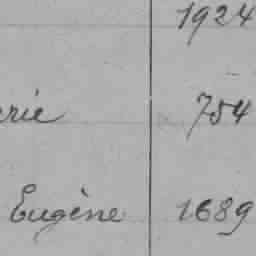 1924
rie 754
Eugène 1689